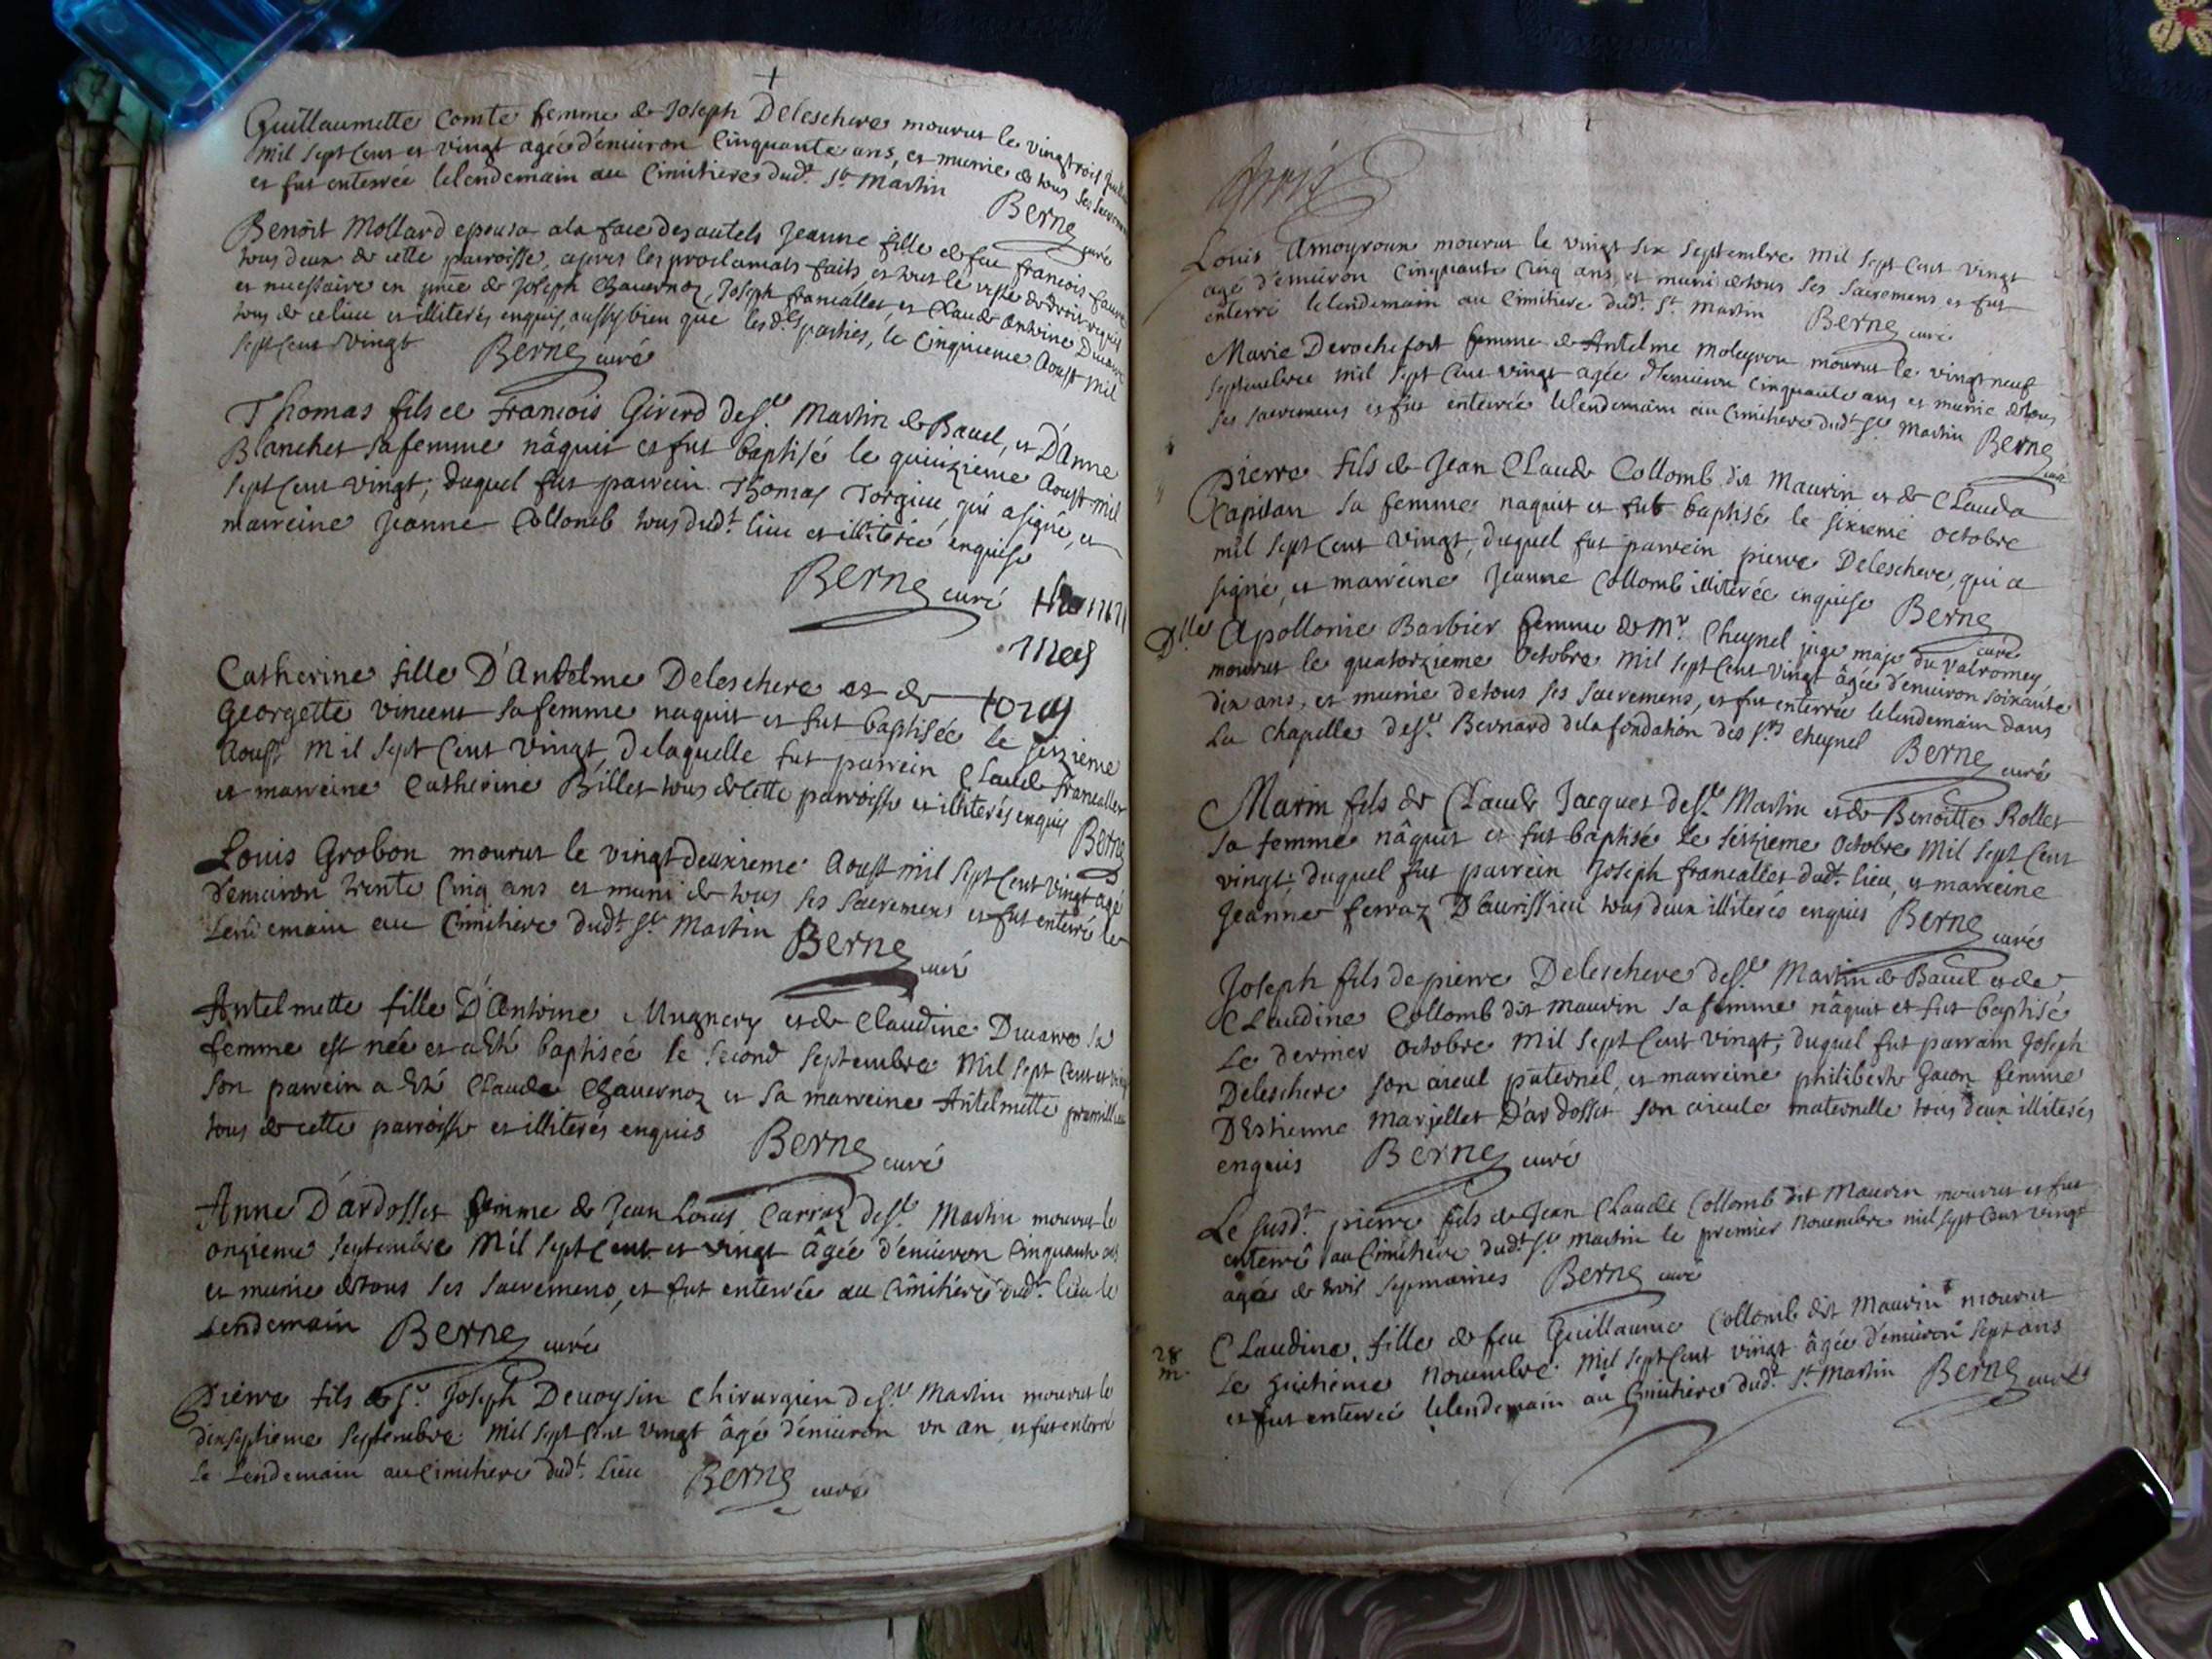 Guillaumette Comte femme de Joseph Deleschere mourut le vingtrois
mil sept Cent et vingt agée d'enuiron Cinquante ans, et munie de tous ses
et fut enterrée le lendemain au Cimitiere dudt. St. Martin
Berne curé
Benoit Mollard epousa a la face des autels Jeanne fille de feu francois faure
tous deux de cette parroisse, apres les proclamats faits et tout le reste de droit requis
et necessaire en pnce de Joseph Chauernoz, Joseph francallet, et Claude Antoine
tous de ce lieu et illiterés enquis, aussy bien que lesd. parties, le Cinquieme Aoust mil
sept Cent vingt Berne curé
Thomas fils de Francois Girerd de St. Martin de Bauel, et D'Anne
Blanchet sa femme nâquit et fut baptisé le quinzieme Aoust mil
sept Cent vingt, duquel fut parrein Thomas Torgiue, qui a signé, et
marreine Jeanne Collomb tous dudt. lieu et illiterée enquise
Berne curé
Catherine fille D'Antelme Deleschere et de
Georgette vincent sa femme naquit et fut baptisée le seizieme
Aoust mil sept Cent vingt, de laquelle fut parrein Claude francallet
et marreine Catherine Billet tous de cette parroisse et illiterés enquis
Berne
Louis Grobon mourut le vingt deuxieme Aoust mil sept Cent vingt agé
d'enuiron trente Cinq ans et muni de tous ses sacremens et fut enterré le
lendemain au Cimitiere dudt. St. Martin Berne curé
Antelmette fille D'Antoine Mugnery et de Claudine Ducarre sa
femme est née et a Eté baptisée le second septembre mil sept Cent et vingt
son parrein a Eté Claude Chauernoz et sa marreine Antelmette
tous de cette parroisse et illiterés enquis Berne curé
Anne D'ardosset femme de Jean Louis Carraz de St. Martin mourut le
onzieme septembre mil sept Cent et vingt âgée d'enuiron Cinquante ans
et munie de tous ses sacremens, et fut enterrée au Cimitiere dudt. lieu le
lendemain Berne curé
Pierre fils de Sr. Joseph Deuoysin Chirurgien de St. Martin mourut le
dixseptieme septembre mil sept Cent vingt âgé d'enuiron vn an, et fut enterré
le lendemain au Cimitiere dudt. lieu Berne curé
Louis Amoyroux mourut le vingt six septembre mil sept Cent vingt
agé d'enuiron Cinquante Cinq ans, et muni de tous ses sacremens et fut
enterré le lendemain au Cimitiere dudt. St. Martin Berne curé
Marie Derochefort femme de Antelme Moleyron mourut le vingt neuf
septembre mil sept Cent vingt agée d'enuiron Cinquante ans et munie de tous
ses sacremens et fut enterrée le lendemain au Cimitiere dudt. St. Martin Berne curé
Pierre fils de Jean Claude Collomb dit Maurin et de Clauda
Capitan sa femme naquit et fut baptisé le sixieme octobre
mil sept Cent vingt, duquel fut parrein pierre Deleschere, qui a
signé, et marreine Jeanne Collomb illiterée enquise Berne curé
Dlle Apollonie Barbier femme de Mr. Cheynel juge maje du valromey,
mourut le quatorzieme Octobre mil sept Cent vingt âgée d'enuiron soixante
dix ans, et munie de tous ses sacremens, et fut enterrée le lendemain dans
La Chapelle de St. Bernard de la fondation des Srs Cheynel Berne curé
Marin fils de Claude Jacques de St. Martin et de Benoitte Rollet
sa femme nâquit et fut baptisé le seizieme octobre mil sept Cent
vingt; duquel fut parrein Joseph francallet dudt. lieu, et marreine
Jeanne ferraz D'aurissieu tous deux illiterés enquis Berne curé
Joseph fils de pierre Deleschere de St. Martin de Bauel et de
Claudine Collomb dit Maurin sa femme nâquit et fut baptisé
Le dernier octobre mil sept Cent vingt; duquel fut parrain Joseph
Deleschere son aieul paternel, et marreine philiberte Gacon femme
D'Estienne Marjollet D'ardosset son aieule maternelle tous deux illiterés
enquis Berne curé
Le susdt. pierre fils de Jean Claude Collomb dit Maurin mourut et fut
enterré au Cimitiere dudt. St. Martin le premier nouembre mil sept Cent vingt
agée de trois sepmaines Berne curé
28
m.
Claudine fille de feu Guillaume Collomb dit Maurin mourut
Le huitieme nouembre mil sept Cent vingt âgée d'enuiron sept ans
et fut enterrée le lendemain au Cimitiere dudt. St. Martin Berne curé